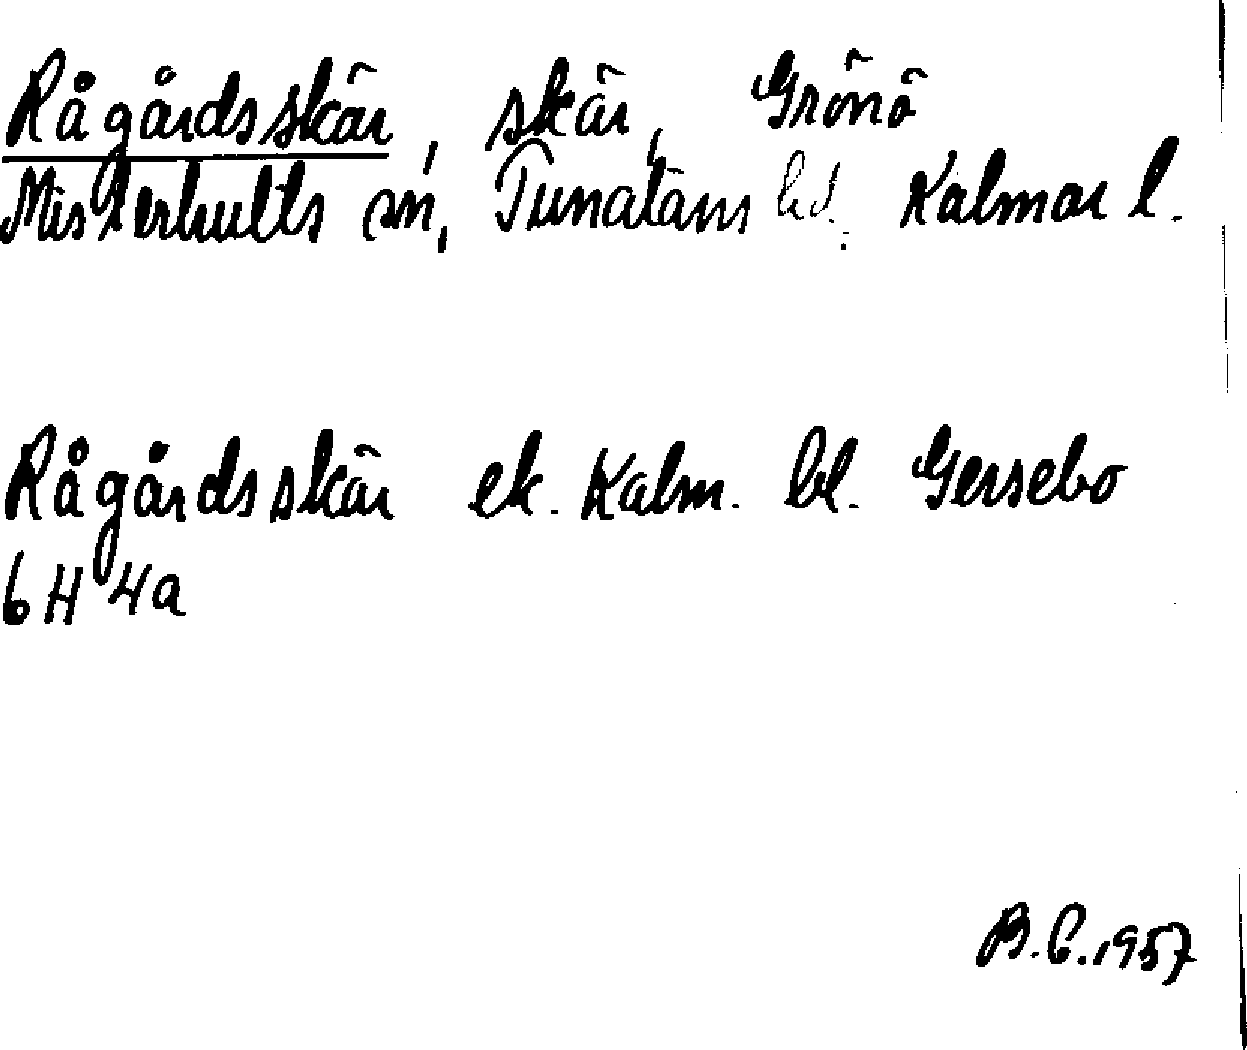 Rågårdsskär, skär, Grönö
Misterhults sn, Tunaläns hd. Kalmar l.
Rågårdsskär ek. Kalm. bl. Gersebo
6H4a
B.G.1957